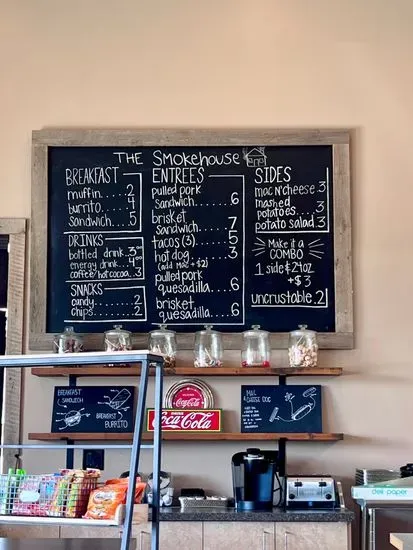 THE SMOKEHOUSE
BREAKFAST
muffin....2
burrito...4
sandwich...5
DRINKS
bottled drink..3
energy drink...4
coffee/hot cocoa..3
SNACKS
candy.....2
chips.....2
ENTRÉES
pulled pork
sandwich....6
brisket
sandwich....7
tacos (3)....5
hot dog......3
(add Mac +$2)
pulled pork
quesadilla....6
brisket
quesadilla....6
SIDES
mac n' cheese.3
mashed
potatoes...3
potato salad.3
Make it a
COMBO
+$3
uncrustable.2
BREAKFAST
SANDWICH
BREAKFAST
BURRITO
MAC
CHEESE DOG
Coca-Cola
Coca-Cola
deli paper